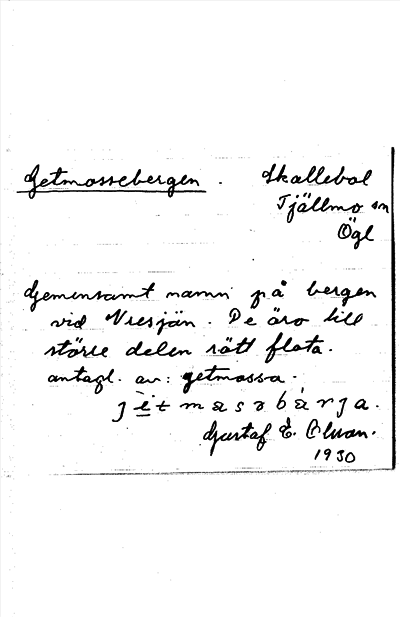 Getmossebergen. Skallebol
Tjällmo sn
Ögl
Gemensamt namn på bergen
vid Nresjön. De äro till
större delen rätt flata.
antagl. av: getmossa.
Gustaf E. 
1930